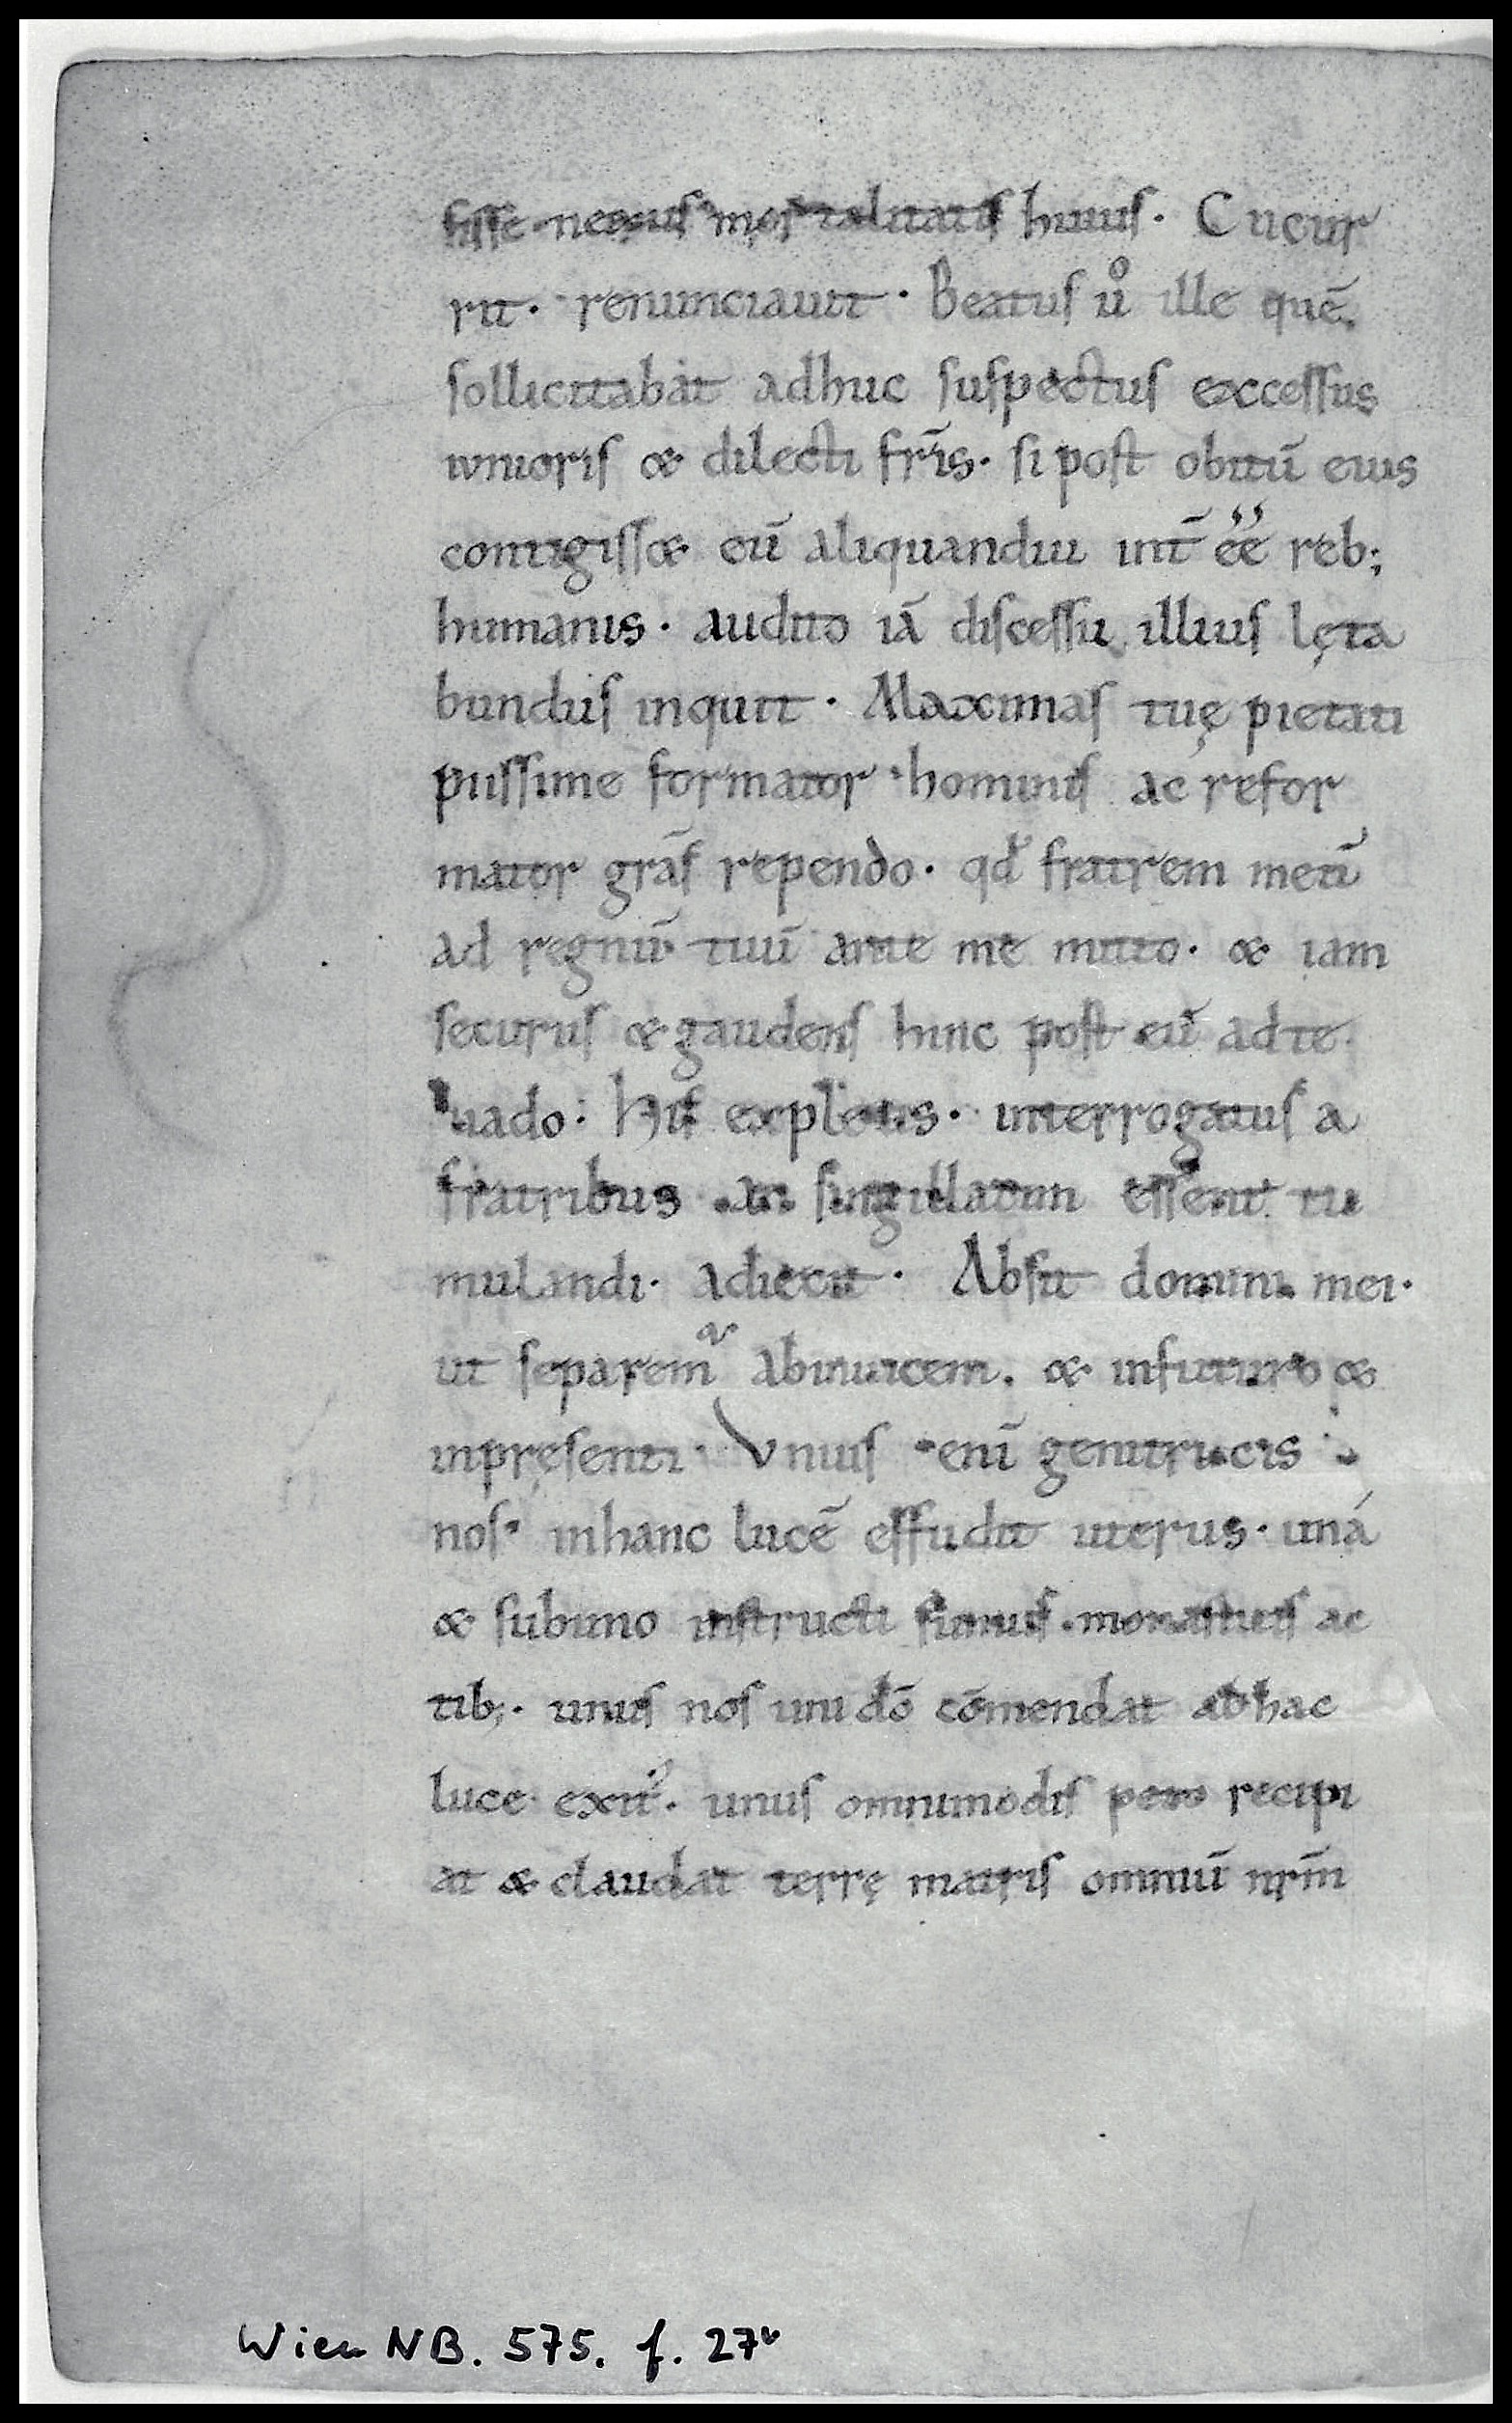 fisse nexus mortalitatis huius. Cucur
rit. renunciauit. Beatus uͦ ille quē
sollicitabat adhuc suspectus excessus
iunioris & dilecti fr̄is. si post obitū eius
contigiss& eū aliquandiu int̄ ee̋ reb;
humanis. audito iā discessu illius lęta
bundus inquit. Maximas tuę pietati
piissime formator hominis ac refor
mator gr̄as rependo. qđ fratrem meū
ad regnū tuū ante me mitto. & iam
securus & gaudens hinc post eū ad te
uado: His expletis. interrogatus a
fratribus an singillatim essent tu
mulandi. adiecit. Absit domini mei.
ut separem᷑ abinuicem. & infuturo &
inpręsenti. Vnius enī genitricis
nos inhanc lucē effudit uterus. uná
& subuno instructi sumus monasticis ac
tib;. unus nos uni dō cōmendat abhac
luce exit᷑. unus omnimodis poro recipi
at & claudat terrę matris omniū nr̄m
Wien NB. 575. f. 27v